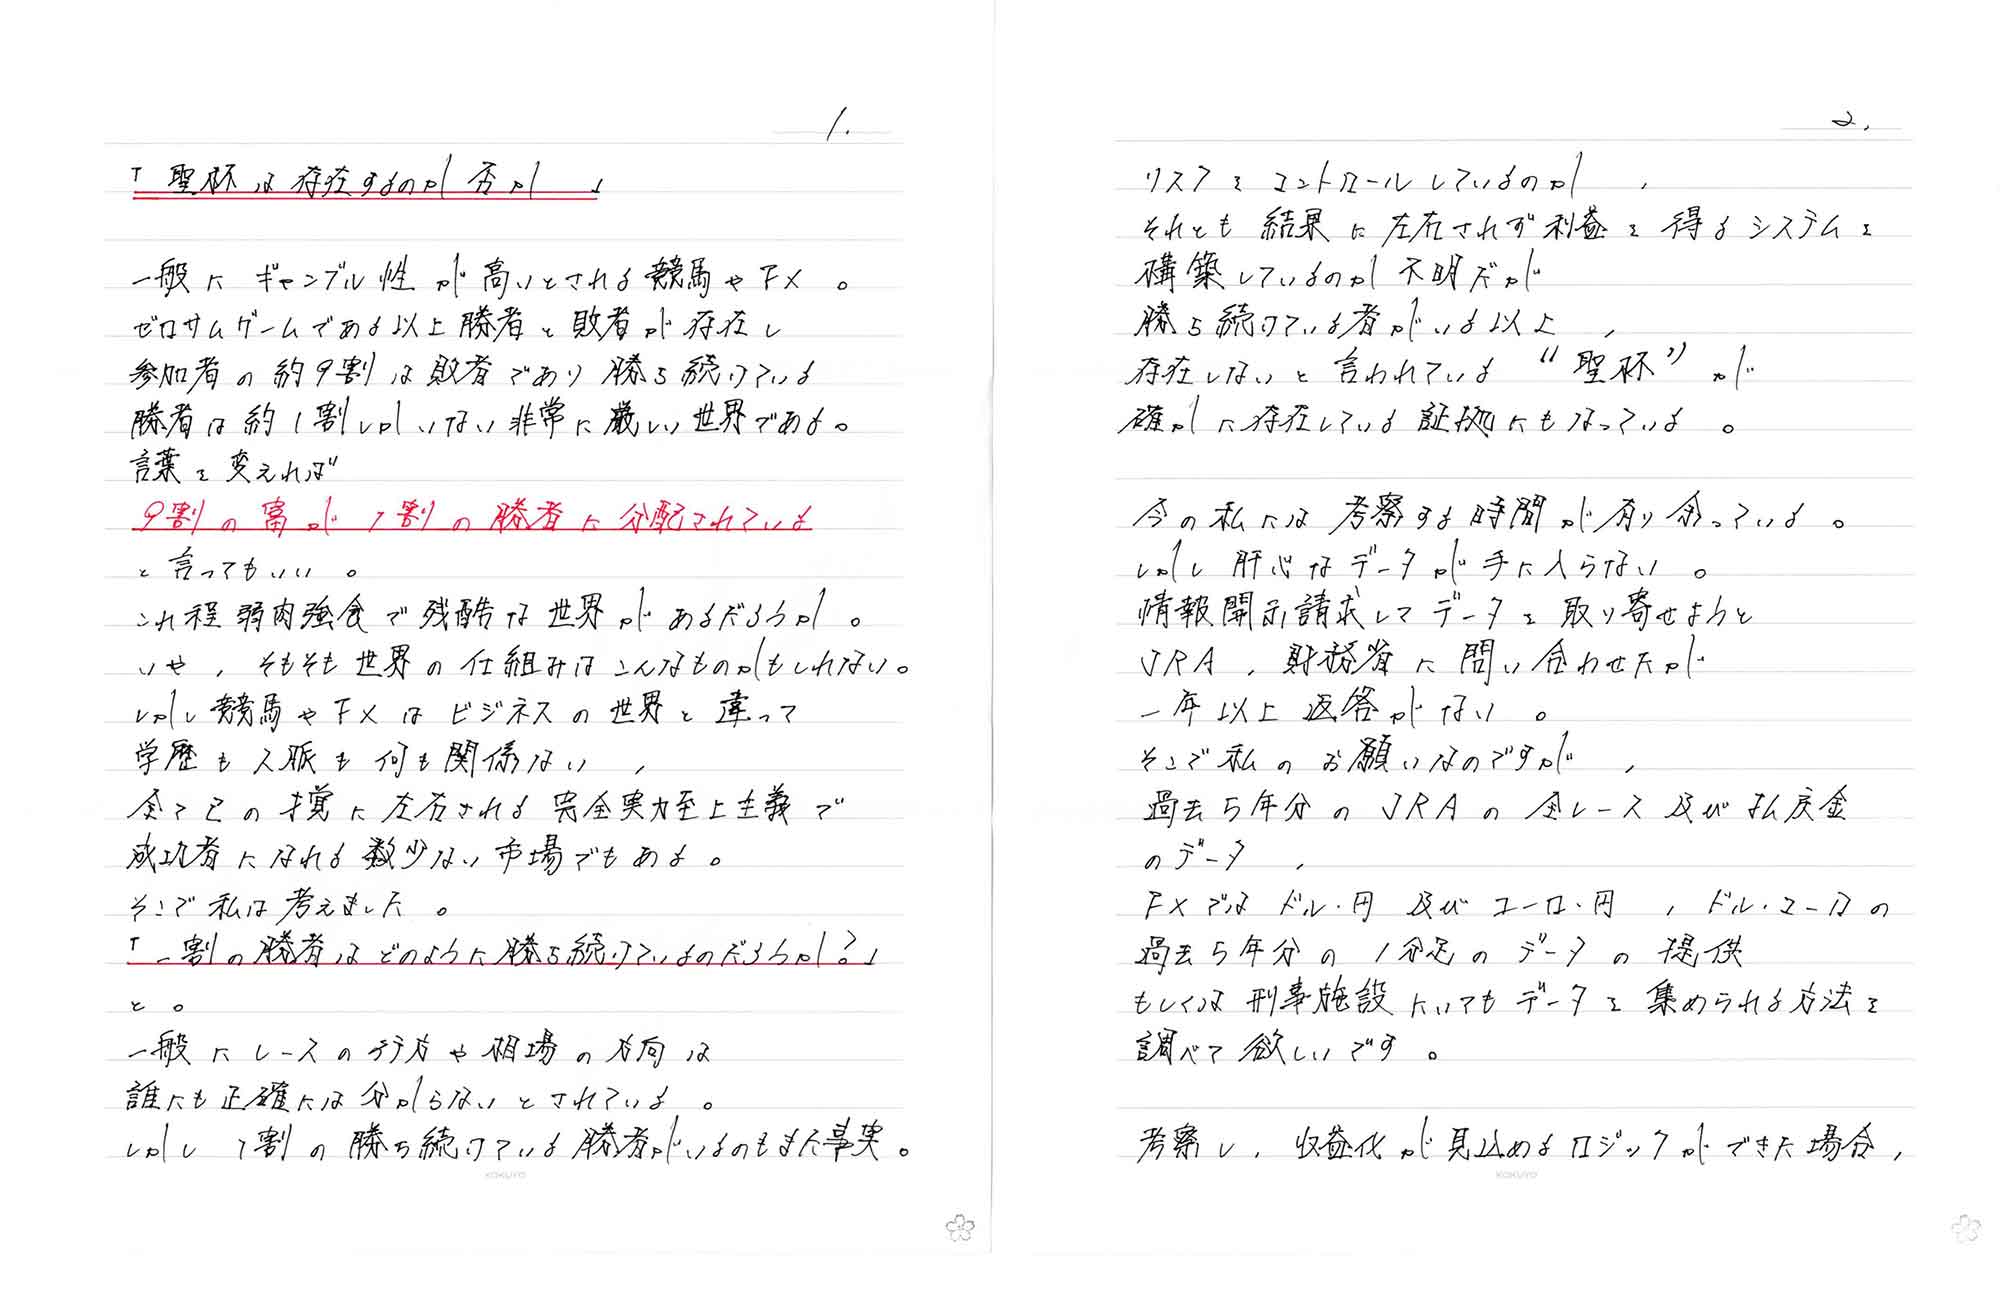 1.
「聖杯は存在するのか否か」
一般にギャンブル性が高いとされる競馬やFX。
ゼロサムゲームである以上勝者と敗者が存在し
参加者の約9割は敗者であり勝ち続けている
勝者は約1割しかいない非常に厳しい世界である。
言葉を変えれば
9割の富が1割の勝者に分配されている
と言ってもいい。
これ程弱肉強食で残酷な世界があるだろうか。
いや、そもそも世界の仕組みはこんなものかもしれない。
しかし競馬やFXはビジネスの世界と違って
学歴も人脈も何も関係ない、
全て己の才覚に左右される完全実力至上主義で
成功者になれる数少ない市場でもある。
そこで私は考えました。
「一割の勝者はどのように勝ち続けているのだろうか?」
と。
一般にレースの行方や相場の方向は
誰にも正確には分からないとされている。
しかし1割の勝ち続けている勝者がいるのもまた事実。
KOKUYO
2.
リスクをコントロールしているのか、
それとも結果に左右されず利益を得るシステムを
構築しているのか不明だが
勝ち続けている者がいる以上、
存在しないと言われている“聖杯”が
確かに存在している証拠にもなっている。
今の私には考察する時間が有り余っている。
しかし肝心なデータが手に入らない。
情報開示請求してデータを取り寄せようと
JRA、財務省に問い合わせたが
一年以上返答がない。
そこで私のお願いなのですが、
過去5年分のJRAの全レース及び払戻金
のデータ、
FXではドル・円及びユーロ・円、ドル・ユーロの
過去5年分の1分足のデータの提供
もしくは刑事施設にいてもデータを集められる方法を
調べて欲しいです。
考察し、収益化が見込めるロジックができた場合、
KOKUYO